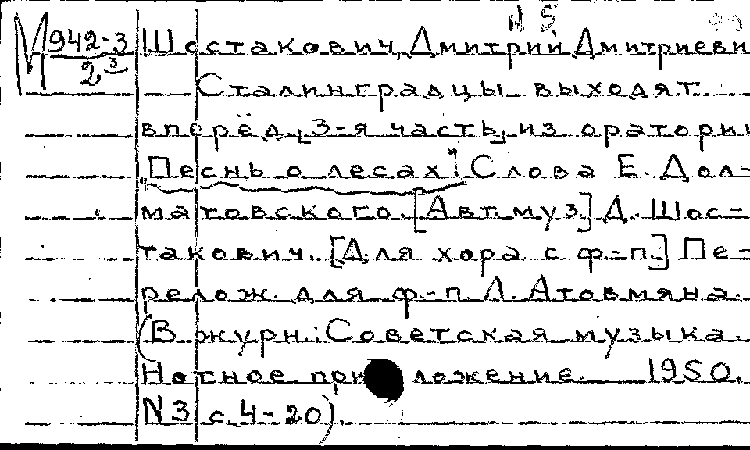 N 5
М 942-3/2³ Шостакович, Дмитрий Дмитриеви
Сталинградцы выходят
вперёд, [3-я часть] из оратории
"Песнь о лесах". Слова Е. Дол-
матовского. [Авт. муз.] Д. Шос-
такович. [Для хора с ф-п.] Пе-
релож. для ф-п. Л. Атовмяна.
(В журн.: Советская музыка.
Нотное приложение. 1950.
N3 с. 4-20).